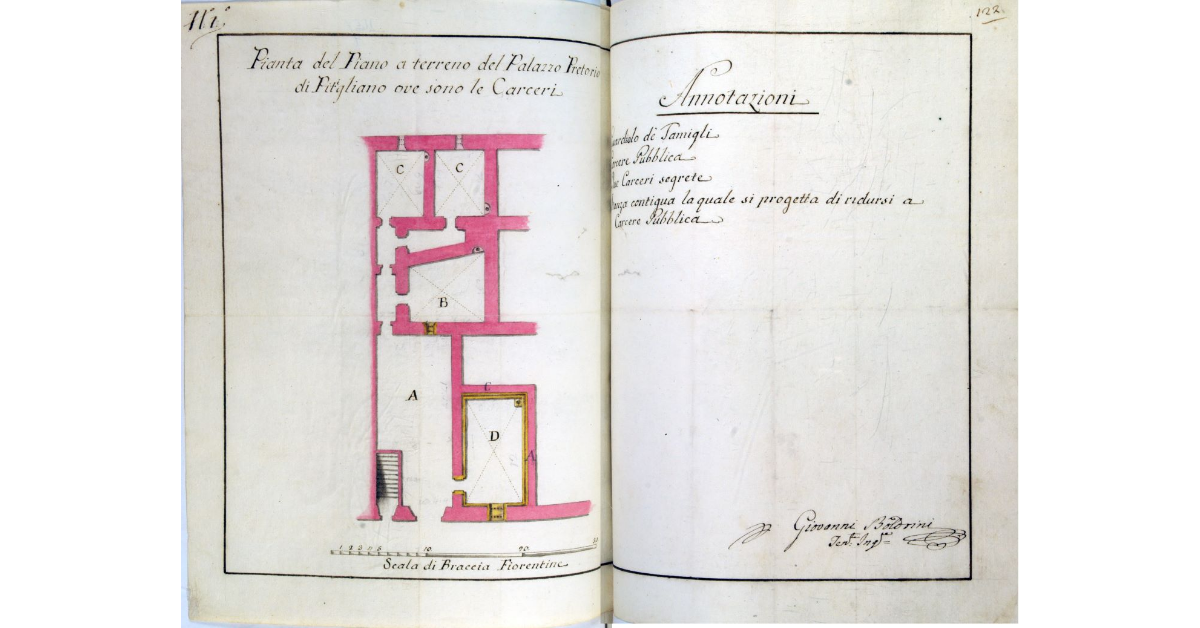 122
Pianta del Piano a terreno del Palazzo Pretorio
di Pitigliano ove sono le Carceri
C C
B
A
C
D
A
1 2 3 4 5 10 20
Scala di Braccia Fiorentine
Annotazioni
de Famigli
Pubblica
Carceri segrete
contigua la quale si progetta di ridursi a
Carcere Pubblica
Giovanni Boldrini
Ten.te Ing.re